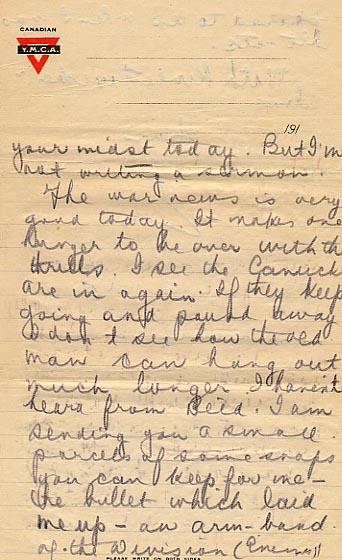 CANADIAN
Y.M.C.A.
191
your midst today. But I'm
not writing a sermon.
The war news is very
good today. It makes one
hunger to be over with the
thrills. I see the Canucks
are in again. If they keep
going and pound away
I don't see how the old
man can hang out
much longer. I haven't
heard from Reid. I am
sending you a small
parcel of some snaps
you can keep for me -
the bullet which laid
me up - an arm-band
of the Division (Enemy)
PLEASE WRITE ON BOTH SIDES